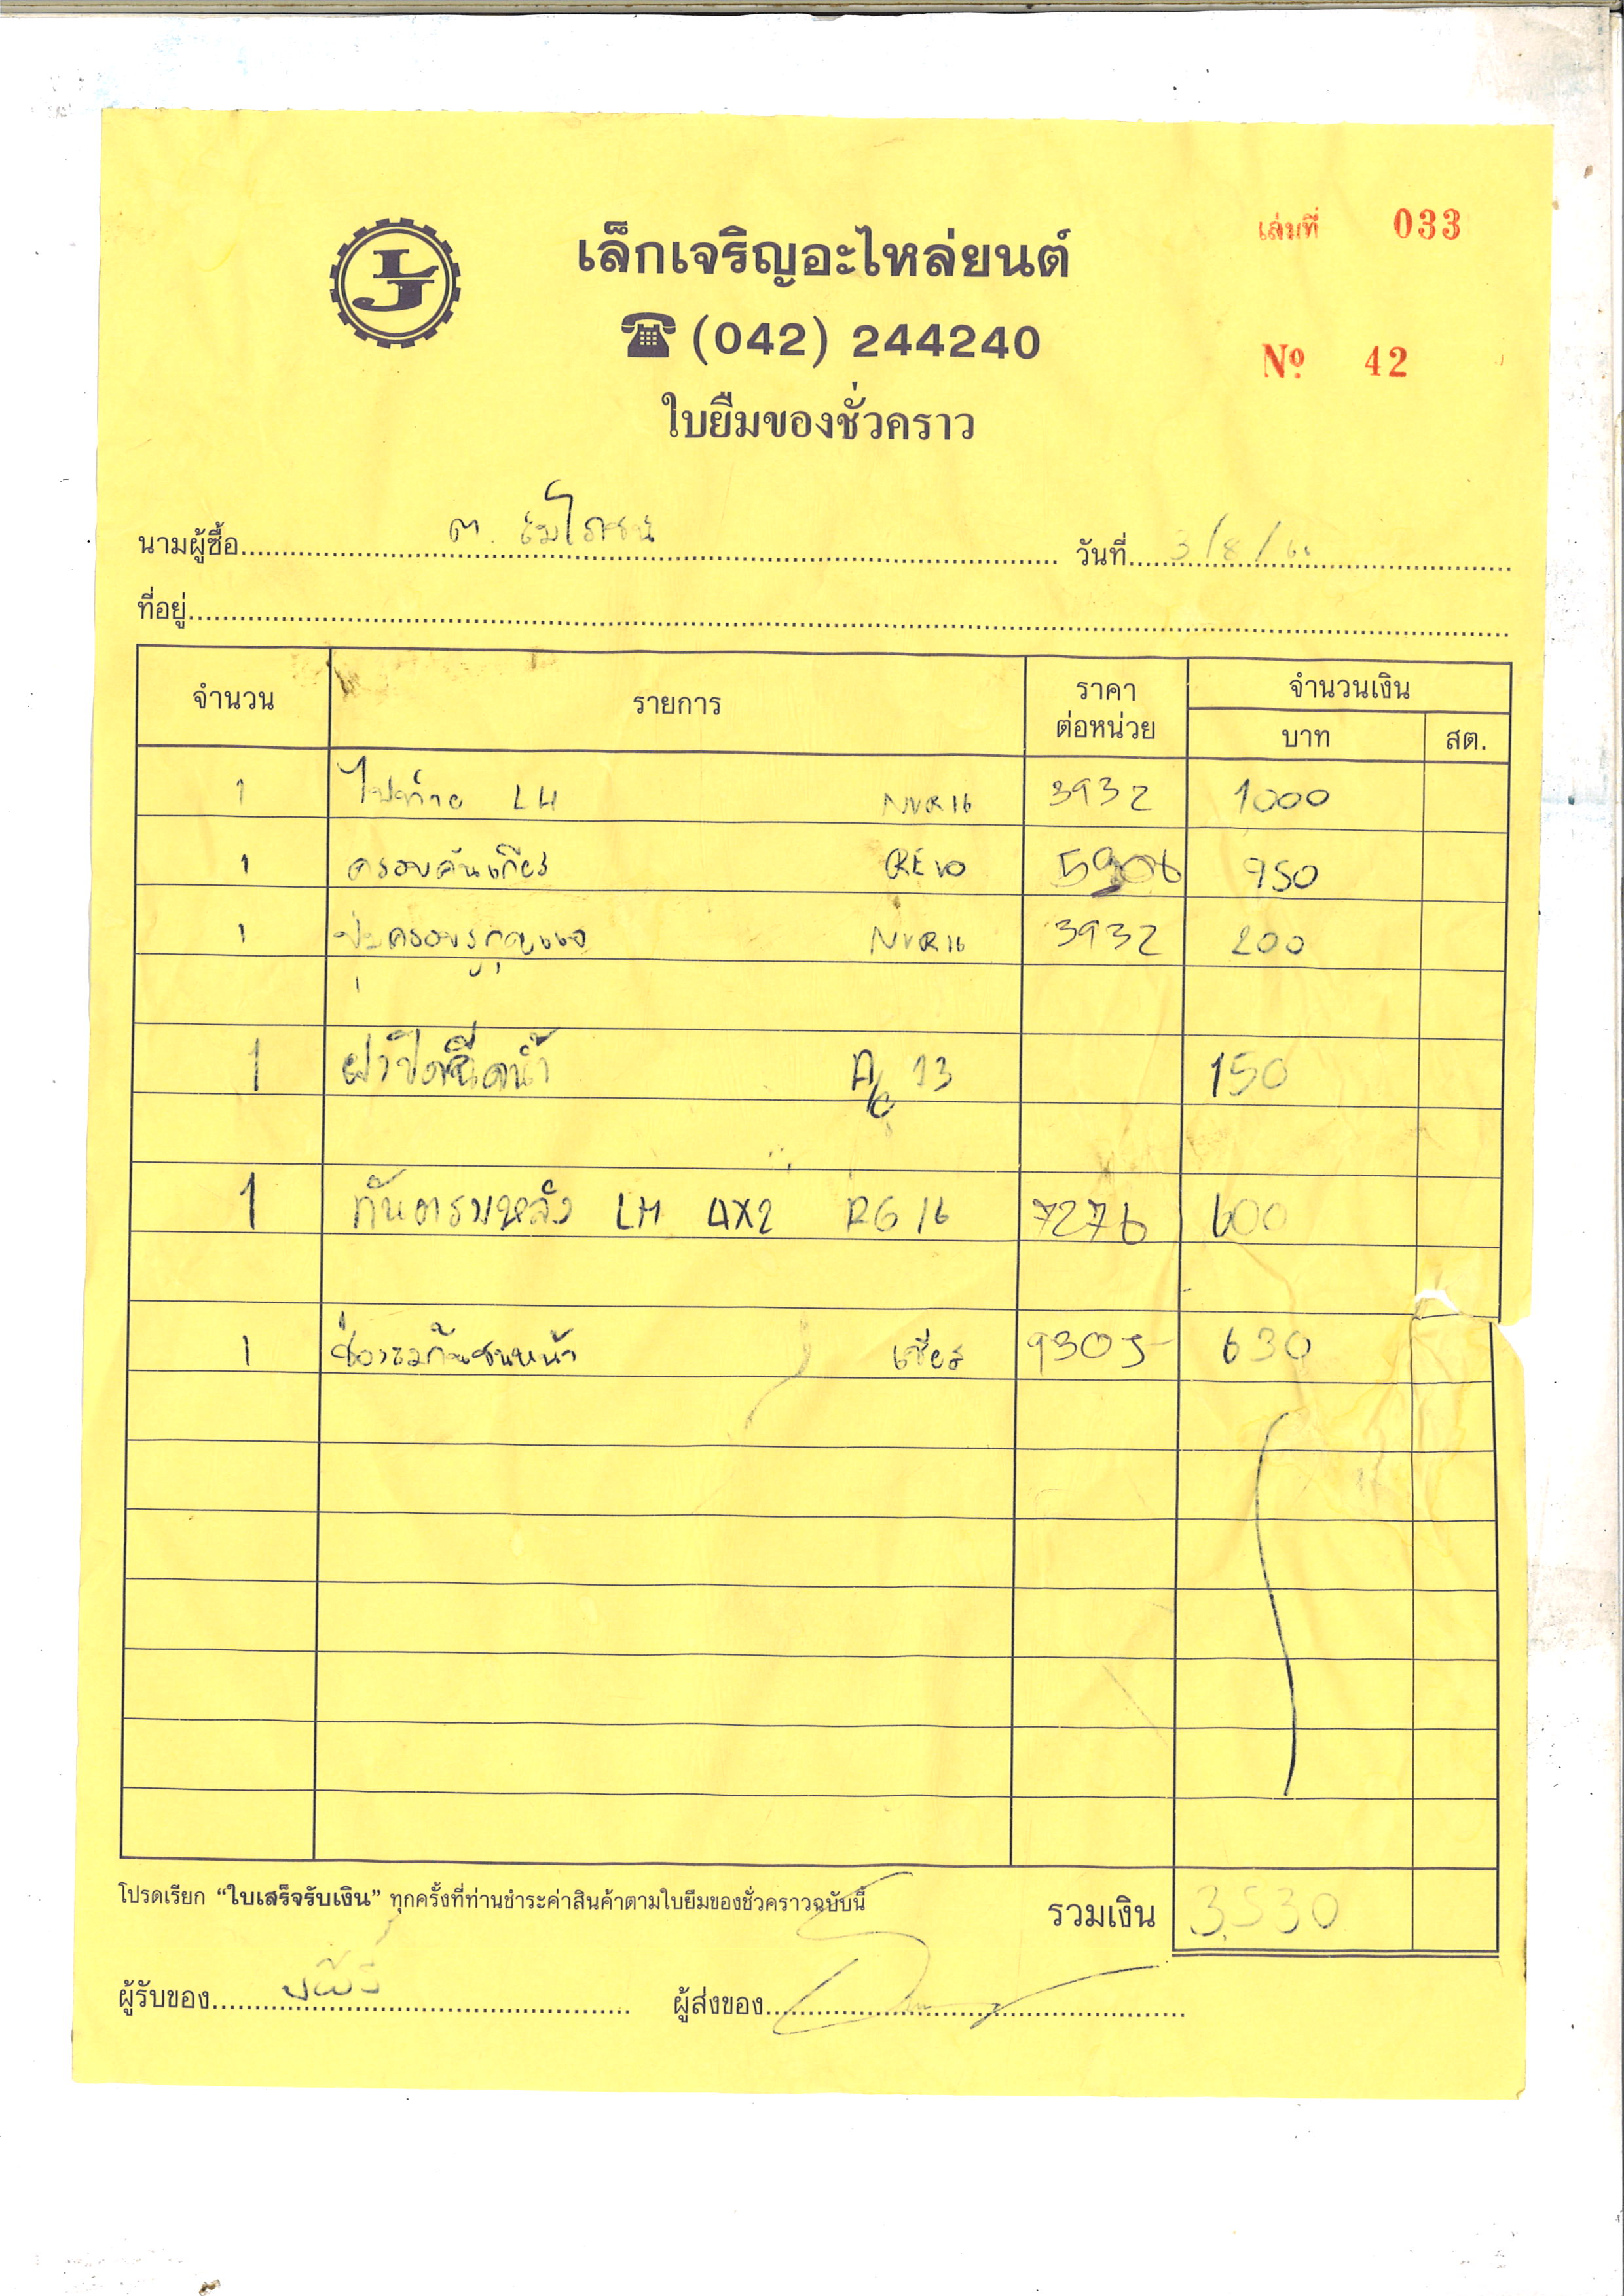 LJ
เล็กเจริญอะไหล่ยนต์
เล่มที่ 033
(042) 244240
Nº 42
ใบยืมของชั่วคราว
นามผู้ซื้อ ต. วันที่ 3/8/66
ที่อยู่
จำนวน รายการ ราคาต่อหน่วย จำนวนเงิน
บาท สต.
1 ไฟท้าย LH NVR16 3932 1000
1 ครอบคันเกียร์ RE10 5906 950
1 ครอบรูกุญแจ NVR16 3932 200
1 ฝาปิดฉีดน้ำ A/C 13 150
1 กันตรมหลัง LH 4X2 RG16 7276 600
1 กันชนหน้า เซียร 9305 630
โปรดเรียก “ใบเสร็จรับเงิน” ทุกครั้งที่ท่านชำระค่าสินค้าตามใบยืมของชั่วคราวฉบับนี้
รวมเงิน 3,530
ผู้รับของ ผู้ส่งของ